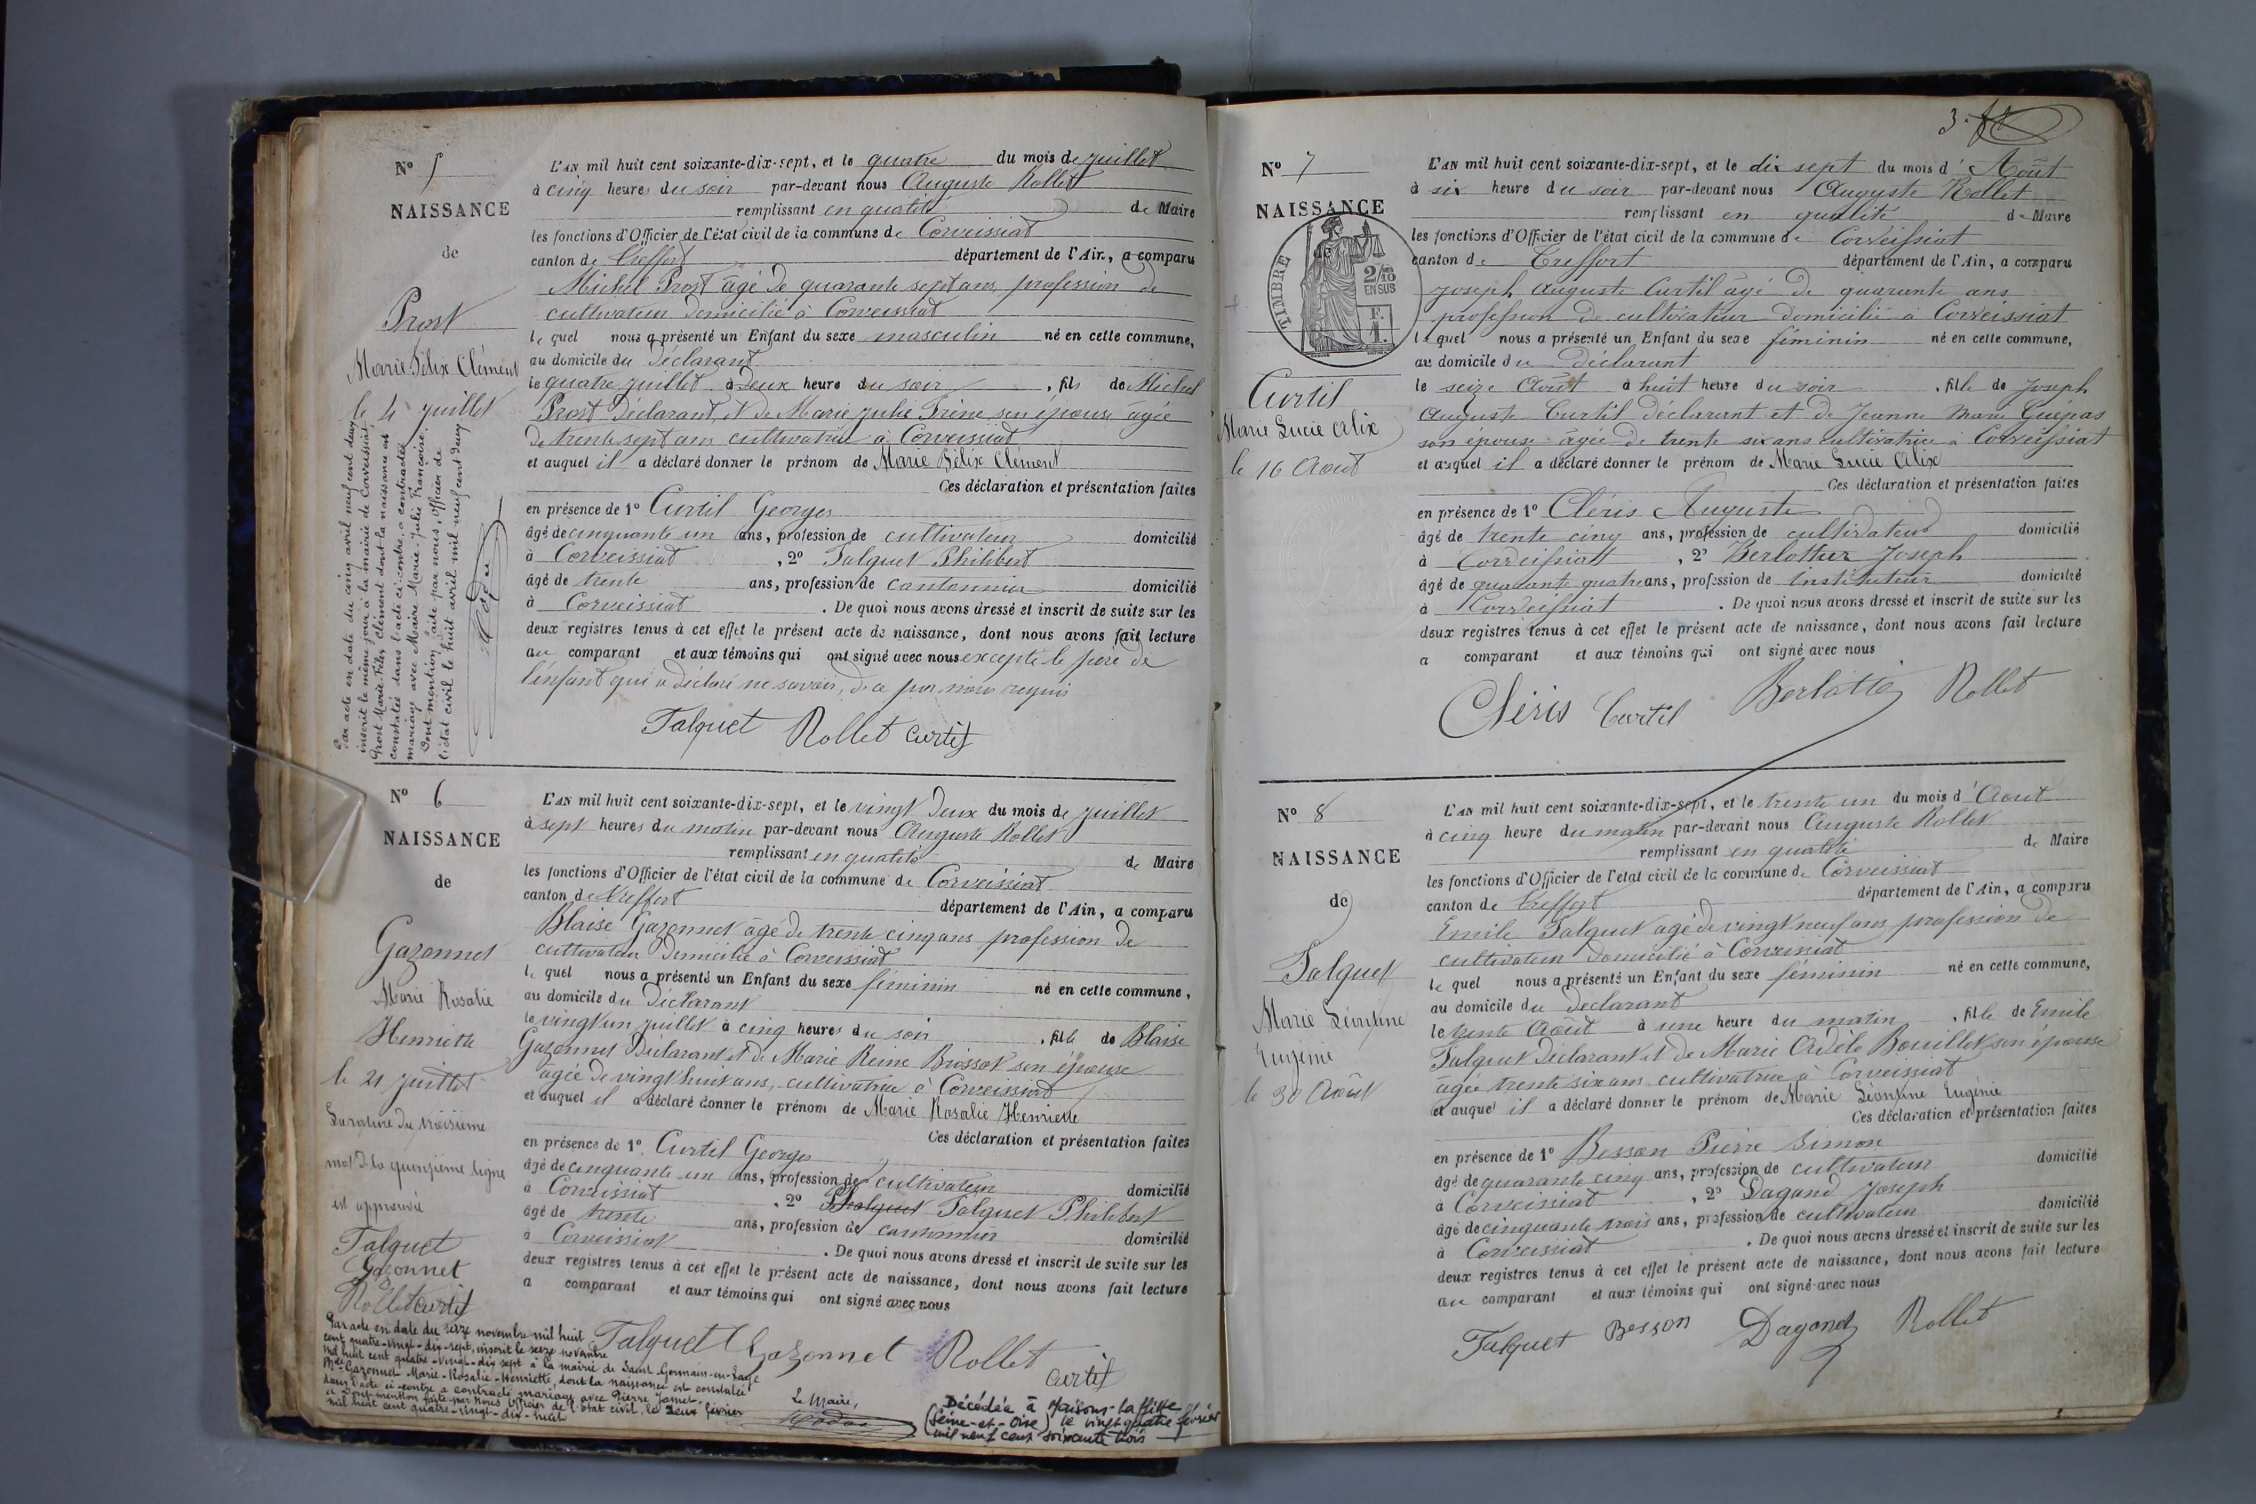 No 5
NAISSANCE
de
Prost
Marie Félix Clément
le 4 juillet
Par acte en date du cinq avril neuf cent deux
inscrit le même jour à la mairie de Corveissiat
Prost Marie-Félix Clément dont la naissance est
constatée dans l'acte ci-contre, a contracté
mariage avec Maire Marie-Julie Françoise.
Dont mention faite par nous, officier de
l'état civil le huit avril mil neuf cent deux
L'AN mil huit cent soixante-dix-sept, et le quatre du mois de juillet
à cinq heures du soir par-devant nous Auguste Rollet
remplissant en qualité de Maire
les fonctions d'Officier de l'état civil de la commune de Corveissiat
canton de Treffort département de l'Ain, a comparu
Michel Prost âgé de quarante sept ans, profession de
cultivateur domicilié à Corveissiat
lequel nous a présenté un Enfant du sexe masculin né en cette commune,
au domicile du déclarant
le quatre juillet à deux heure du soir, fils de Michel
Prost déclarant, et de Marie Julie Frène son épouse âgée
de trente sept ans cultivatrice à Corveissiat
et auquel il a déclaré donner le prénom de Marie Félix Clément
Ces déclaration et présentation faites
en présence de 1° Curtil Georges
âgé de cinquante un ans, profession de cultivateur domicilié
à Corveissiat, 2° Falquet Philibert
âgé de trente ans, profession de cantonnier domicilié
à Corveissiat. De quoi nous avons dressé et inscrit de suite sur les
deux registres tenus à cet effet le présent acte de naissance, dont nous avons fait lecture
au comparant et aux témoins qui ont signé avec nous excepté le père de
l'enfant qui a déclaré ne savoir, de ce par nous requis
Falquet Rollet Curtil
No 6
NAISSANCE
de
Gazonnet
Marie Rosalie
Henriette
le 21 juillet
La rature du troisième
mot à la quinzième ligne
est approuvée
Falquet
Gazonnet
Rollet Curtil
L'AN mil huit cent soixante-dix-sept, et le vingt deux du mois de juillet
à sept heures du matin par-devant nous Auguste Rollet
remplissant en qualité de Maire
les fonctions d'Officier de l'état civil de la commune de Corveissiat
canton de Treffort département de l'Ain, a comparu
Blaise Gazonnet âgé de trente cinq ans profession de
cultivateur domicilié à Corveissiat
lequel nous a présenté un Enfant du sexe féminin né en cette commune,
au domicile du déclarant
le vingt un juillet à cinq heures du soir, fille de Blaise
Gazonnet déclarant et de Marie Reine Brissot son épouse
agée de vingt huit ans, cultivatrice à Corveissiat
et auquel il a déclaré donner le prénom de Marie Rosalie Henriette
Ces déclaration et présentation faites
en présence de 1° Curtil Georges
âgé de cinquante un ans, profession de cultivateur domicilié
à Corveissiat, 2° Falquet Philibert
âgé de trente ans, profession de cantonnier domicilié
à Corveissiat. De quoi nous avons dressé et inscrit de suite sur les
deux registres tenus à cet effet le présent acte de naissance, dont nous avons fait lecture
a comparant et aux témoins qui ont signé avec nous
Falquet Gazonnet Rollet
Curtil
Par acte en date du seize novembre mil huit
cent quatre-vingt-dix-sept, inscrit le seize novembre
mil huit cent quatre-vingt-dix sept à la mairie de Saint Germain-en-Laye
Mlle Gazonnet Marie-Rosalie-Henriette, dont la naissance est constatée
dans l'acte ci-contre a contracté mariage avec Pierre Jamet.
Dont mention faite par nous officier de l'état civil, le deux février
mil huit cent quatre-vingt-dix-huit
Le Maire,
Décédée à Maisons-Laffitte
(Seine-et-Oise) le vingt quatre février
mil neuf cent soixante trois
3.
No 7
NAISSANCE
de
TIMBRE
2/10
EN SUS
F.
1.
Curtil
Marie Lucie Alix
le 16 Août
L'AN mil huit cent soixante-dix-sept, et le dix sept du mois d'Août
à six heure du soir par-devant nous Auguste Rollet
remplissant en qualité de Maire
les fonctions d'Officier de l'état civil de la commune de Corveissiat
canton de Treffort département de l'Ain, a comparu
Joseph Auguste Curtil âgé de quarante ans
profession de cultivateur domicilié à Corveissiat
lequel nous a présenté un Enfant du sexe féminin né en cette commune,
au domicile du déclarant
le seize Août à huit heure du soir, fille de Joseph
Auguste Curtil déclarant et de Jeanne Marie Guépas
son épouse âgée de trente six ans cultivatrice à Corveissiat
et auquel il a déclaré donner le prénom de Marie Lucie Alix
Ces déclaration et présentation faites
en présence de 1° Cléris Auguste
âgé de trente cinq ans, profession de cultivateur domicilié
à Corveissiat, 2° Berlottier Joseph
âgé de quarante quatre ans, profession de instituteur domicilié
à Corveissiat. De quoi nous avons dressé et inscrit de suite sur les
deux registres tenus à cet effet le présent acte de naissance, dont nous avons fait lecture
a comparant et aux témoins qui ont signé avec nous
Cléris Curtil Rollet
No 8
NAISSANCE
de
Falquet
Marie Léontine
Eugénie
le 30 Août
L'AN mil huit cent soixante-dix-sept, et le trente un du mois d'Août
à cinq heure du matin par-devant nous Auguste Rollet
remplissant en qualité de Maire
les fonctions d'Officier de l'état civil de la commune de Corveissiat
canton de Treffort département de l'Ain, a comparu
Emile Falquet agé de vingt neuf ans profession de
cultivateur domicilié à Corveissiat
lequel nous a présenté un Enfant du sexe féminin né en cette commune,
au domicile du déclarant
le trente Août à une heure du matin, fille de Emile
Falquet déclarant et de Marie Adèle Bouillet son épouse
agée trente six ans cultivatrice à Corveissiat
et auquel il a déclaré donner le prénom de Marie Léontine Eugénie
Ces déclaration et présentation faites
en présence de 1° Besson Pierre Simon
âgé de quarante cinq ans, profession de cultivateur domicilié
à Corveissiat, 2° Dagand Joseph
âgé de cinquante trois ans, profession de cultivateur domicilié
à Corveissiat. De quoi nous avons dressé et inscrit de suite sur les
deux registres tenus à cet effet le présent acte de naissance, dont nous avons fait lecture
au comparant et aux témoins qui ont signé avec nous
Falquet Besson Dagand Rollet